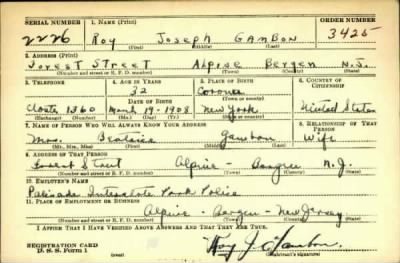 SERIAL NUMBER 1. NAME (Print) ORDER NUMBER
2226 Roy Joseph Gambon 3425
(First) (Middle) (Last)
2. ADDRESS (Print)
Forest Street Alpine Bergen N.J.
(Number and street or R. F. D. number) (Town) (County) (State)
3. TELEPHONE 4. AGE IN YEARS 5. PLACE OF BIRTH 6. COUNTRY OF CITIZENSHIP
32 Corona
DATE OF BIRTH (Town or county)
1360 March 19-1908 New York United States
(Exchange) (Number) (Mo.) (Day) (Yr.) (State or country)
7. NAME OF PERSON WHO WILL ALWAYS KNOW YOUR ADDRESS 8. RELATIONSHIP OF THAT PERSON
Mrs. Beatrice Gambon Wife
(Mr., Mrs., Miss) (First) (Middle) (Last)
9. ADDRESS OF THAT PERSON
Forest Street Alpine - Bergen N.J.
(Number and street or R. F. D. number) (Town) (County) (State)
10. EMPLOYER'S NAME
Palisade Interstate Park Police
11. PLACE OF EMPLOYMENT OR BUSINESS
Alpine - Bergen - New Jersey
(Number and street or R. F. D. number) (Town) (County) (State)
I AFFIRM THAT I HAVE VERIFIED ABOVE ANSWERS AND THAT THEY ARE TRUE.
REGISTRATION CARD Roy J Gambon
D. S. S. Form 1 (Registrant's signature)